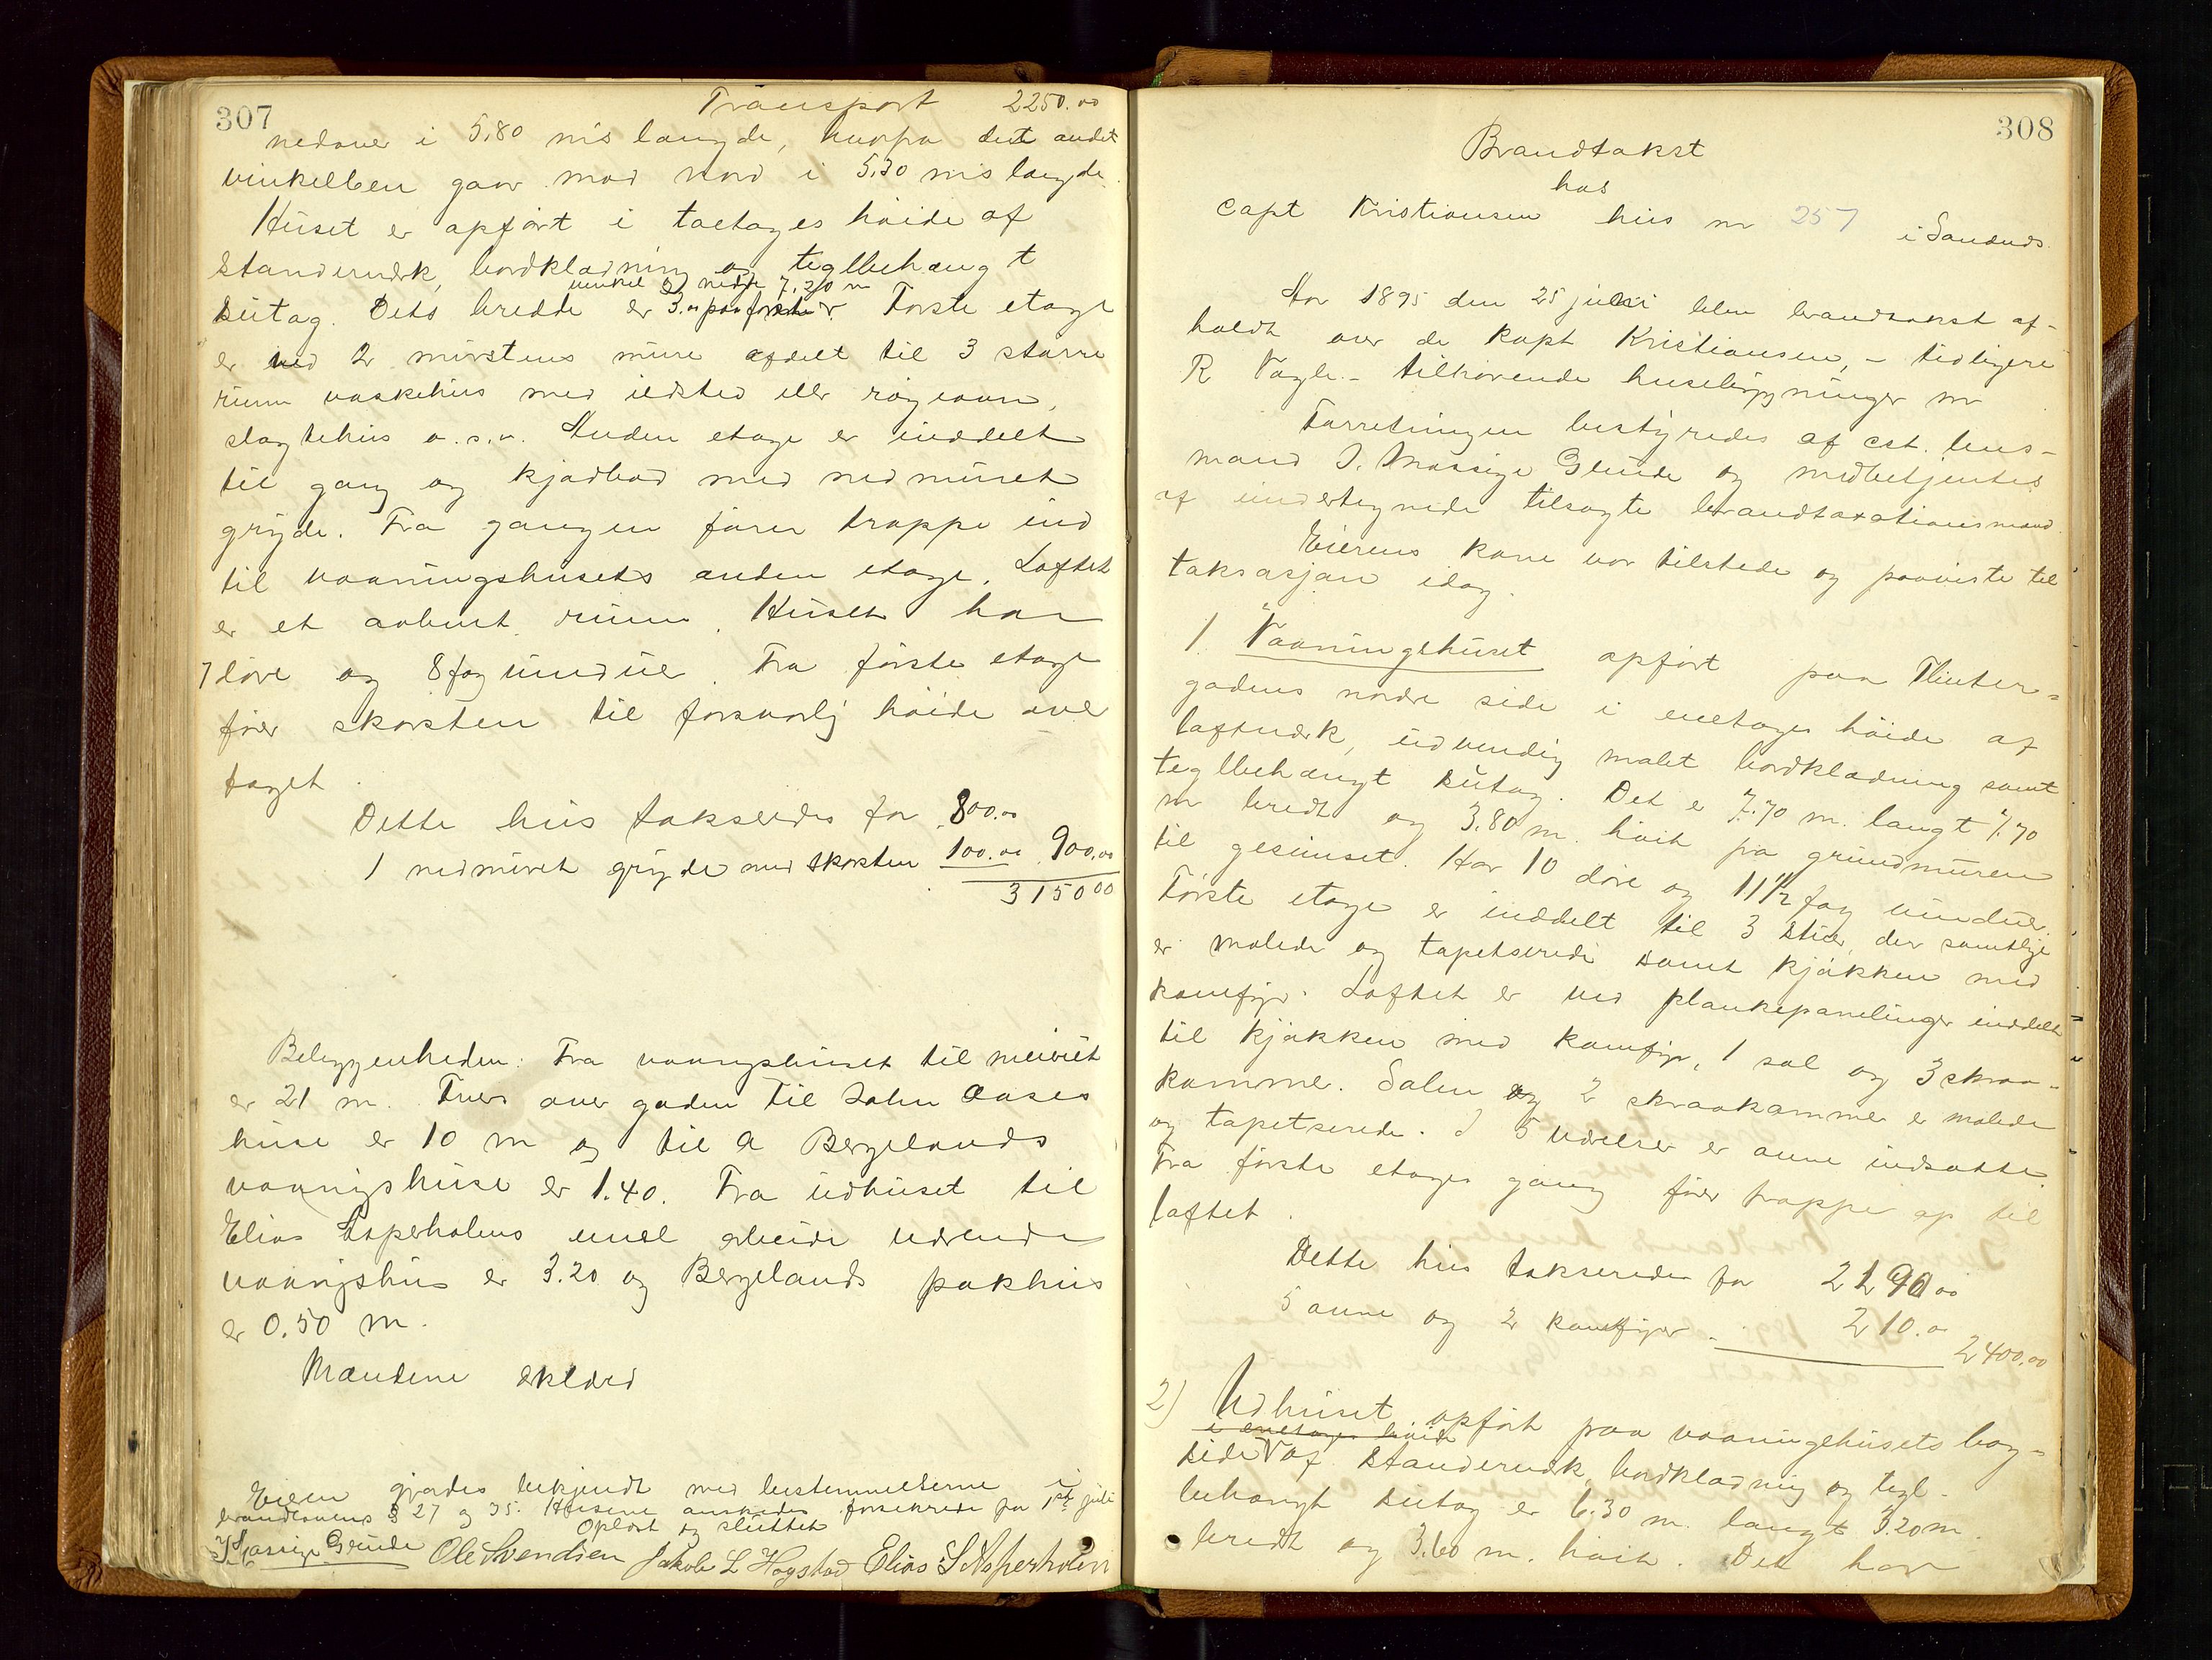 307
Transport 2250.00
nedover i 5.80 m's længde, hvorpa det andet
vinkelben gaar mod nord i 5.30 m's længde.
Huset er opført i toetages høide af
standerverk, bordklædning og teglbehængt
vinkel nedre 7.20 m
sutag. Dets bredde er 3.00 paa første. Første etage
er ved 2 murstens mure afdelt til 3 større
rum vaskehus med ildsted eller røgeovn,
slagtehus o.s.v. Anden etage er inddelt
til gang og kjødbod med nedmuret
gryde. Fra gangen fører trappe ind
til vaaningshusets anden etage. Loftet
er et aabent rum. Huset har
7 døre og 8 fag vinduer. Fra første etage
fører skorsten til forsvarlig høide over
taget.
Dette hus takseredes for 800.00
1 nedmuret gryde med skorsten 100.00 900.00
3150 00
Beliggenheden: Fra vaaningshuset til meieriet
er 21 m. Tvers over gaden til John Aases
huse er 10 m og til A Bergelands
vaaningshuse er 1.40. Fra udhuset til
Elias Asperholens under arbeide værende
vaaningshus er 3.20 og Bergelands pakhus
er 0.50 m.
Mændene erklærd
Eieren gjordes bekjendt med bestemmelserne i
brandlovens § 27 og 35. Husene ønskedes forsikrede fra 1ste juli
Oplæst og sluttet
J. Massige Grude Ole Svendsen Jakob L Hogstad Elias S Asperholen
308
Brandtakst
hos
Capt Kristiansen hus nr 257 i Sandnes.
Aar 1895 den 25 juli blev brandtakst af-
holdt over de Kapt Kristiansen, - tidligere
R Vagle - tilhørende husebygninger nr
Forretningen bestyredes af cst. lens-
mand J. Massige Grude og medbetjentes
af undertegnede tilsagte brandtaxationsmænd.
Eierens kone var tilstede og paaviste til
taksasjon idag.
1. Vaaningshuset opført paa Flinter-
gadens nordre side i enetages høide af
laftverk, udvendig malet bordklædning samt
teglbehængt sutag. Det er 7.70 m. langt 7.70
m bredt og 3.80 m. høit fra grundmuren
til gesimset. Har 10 døre og 11 1/2 fag vinduer.
Første etage er inddelt til 3 stuer, der samtlige
er malede og tapetserede samt kjøkken med
komfyr. Loftet er ved plankepanelinger inddelt
til kjøkken med komfyr, 1 sal og 3 skraa-
kammer. Salen og 2 skraakammer er malede
og tapetserede. I 5 værelser er ovne indsatte.
Fra første etages gang fører trappe op til
loftet.
Dette hus takseredes for 2190 00
5 ovne og 2 komfyrer 210.00 2400.00
2) Udhuset opført paa vaaningshusets bag-
i enetages høide
side af standerverk, bordklædning og tegl-
behængt sutag er 6.30 m. langt 3.20 m.
bredt og 3.60 m. høit. Det har